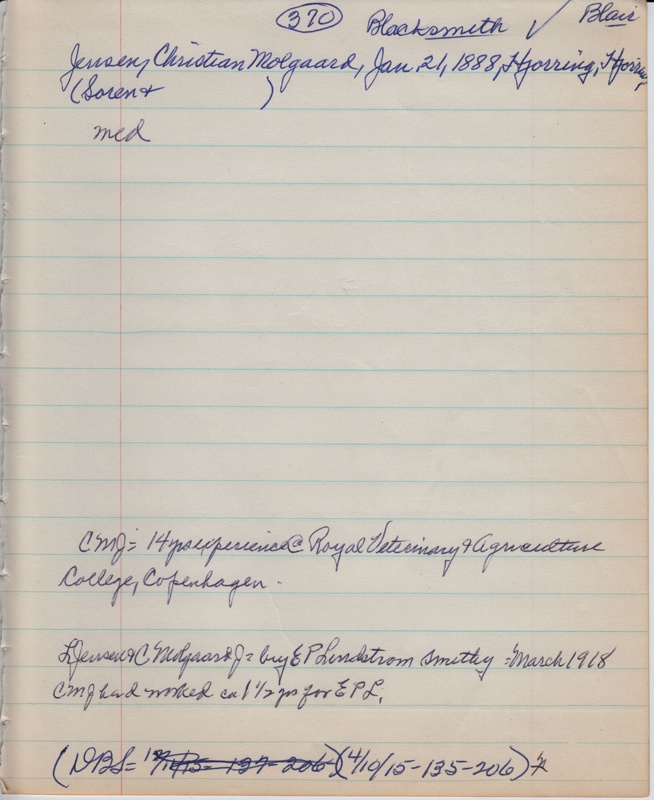 370 Blacksmith ✓ Blair
Jensen, Christian Molgaard, Jan. 21, 1888, Hjorring, Hjorring,
(Soren + )
med
CMJ = 14 yrs experience @ Royal Veterinary & Agriculture
College, Copenhagen.
L Jensen & C Molgaard J = buy E P Lindstrom smithy = March 1918
CMJ had worked ca 1 1/2 yrs for E P L.
(DBS = 12/11/15 - 137 - 206) (4/10/15 - 135 - 206)